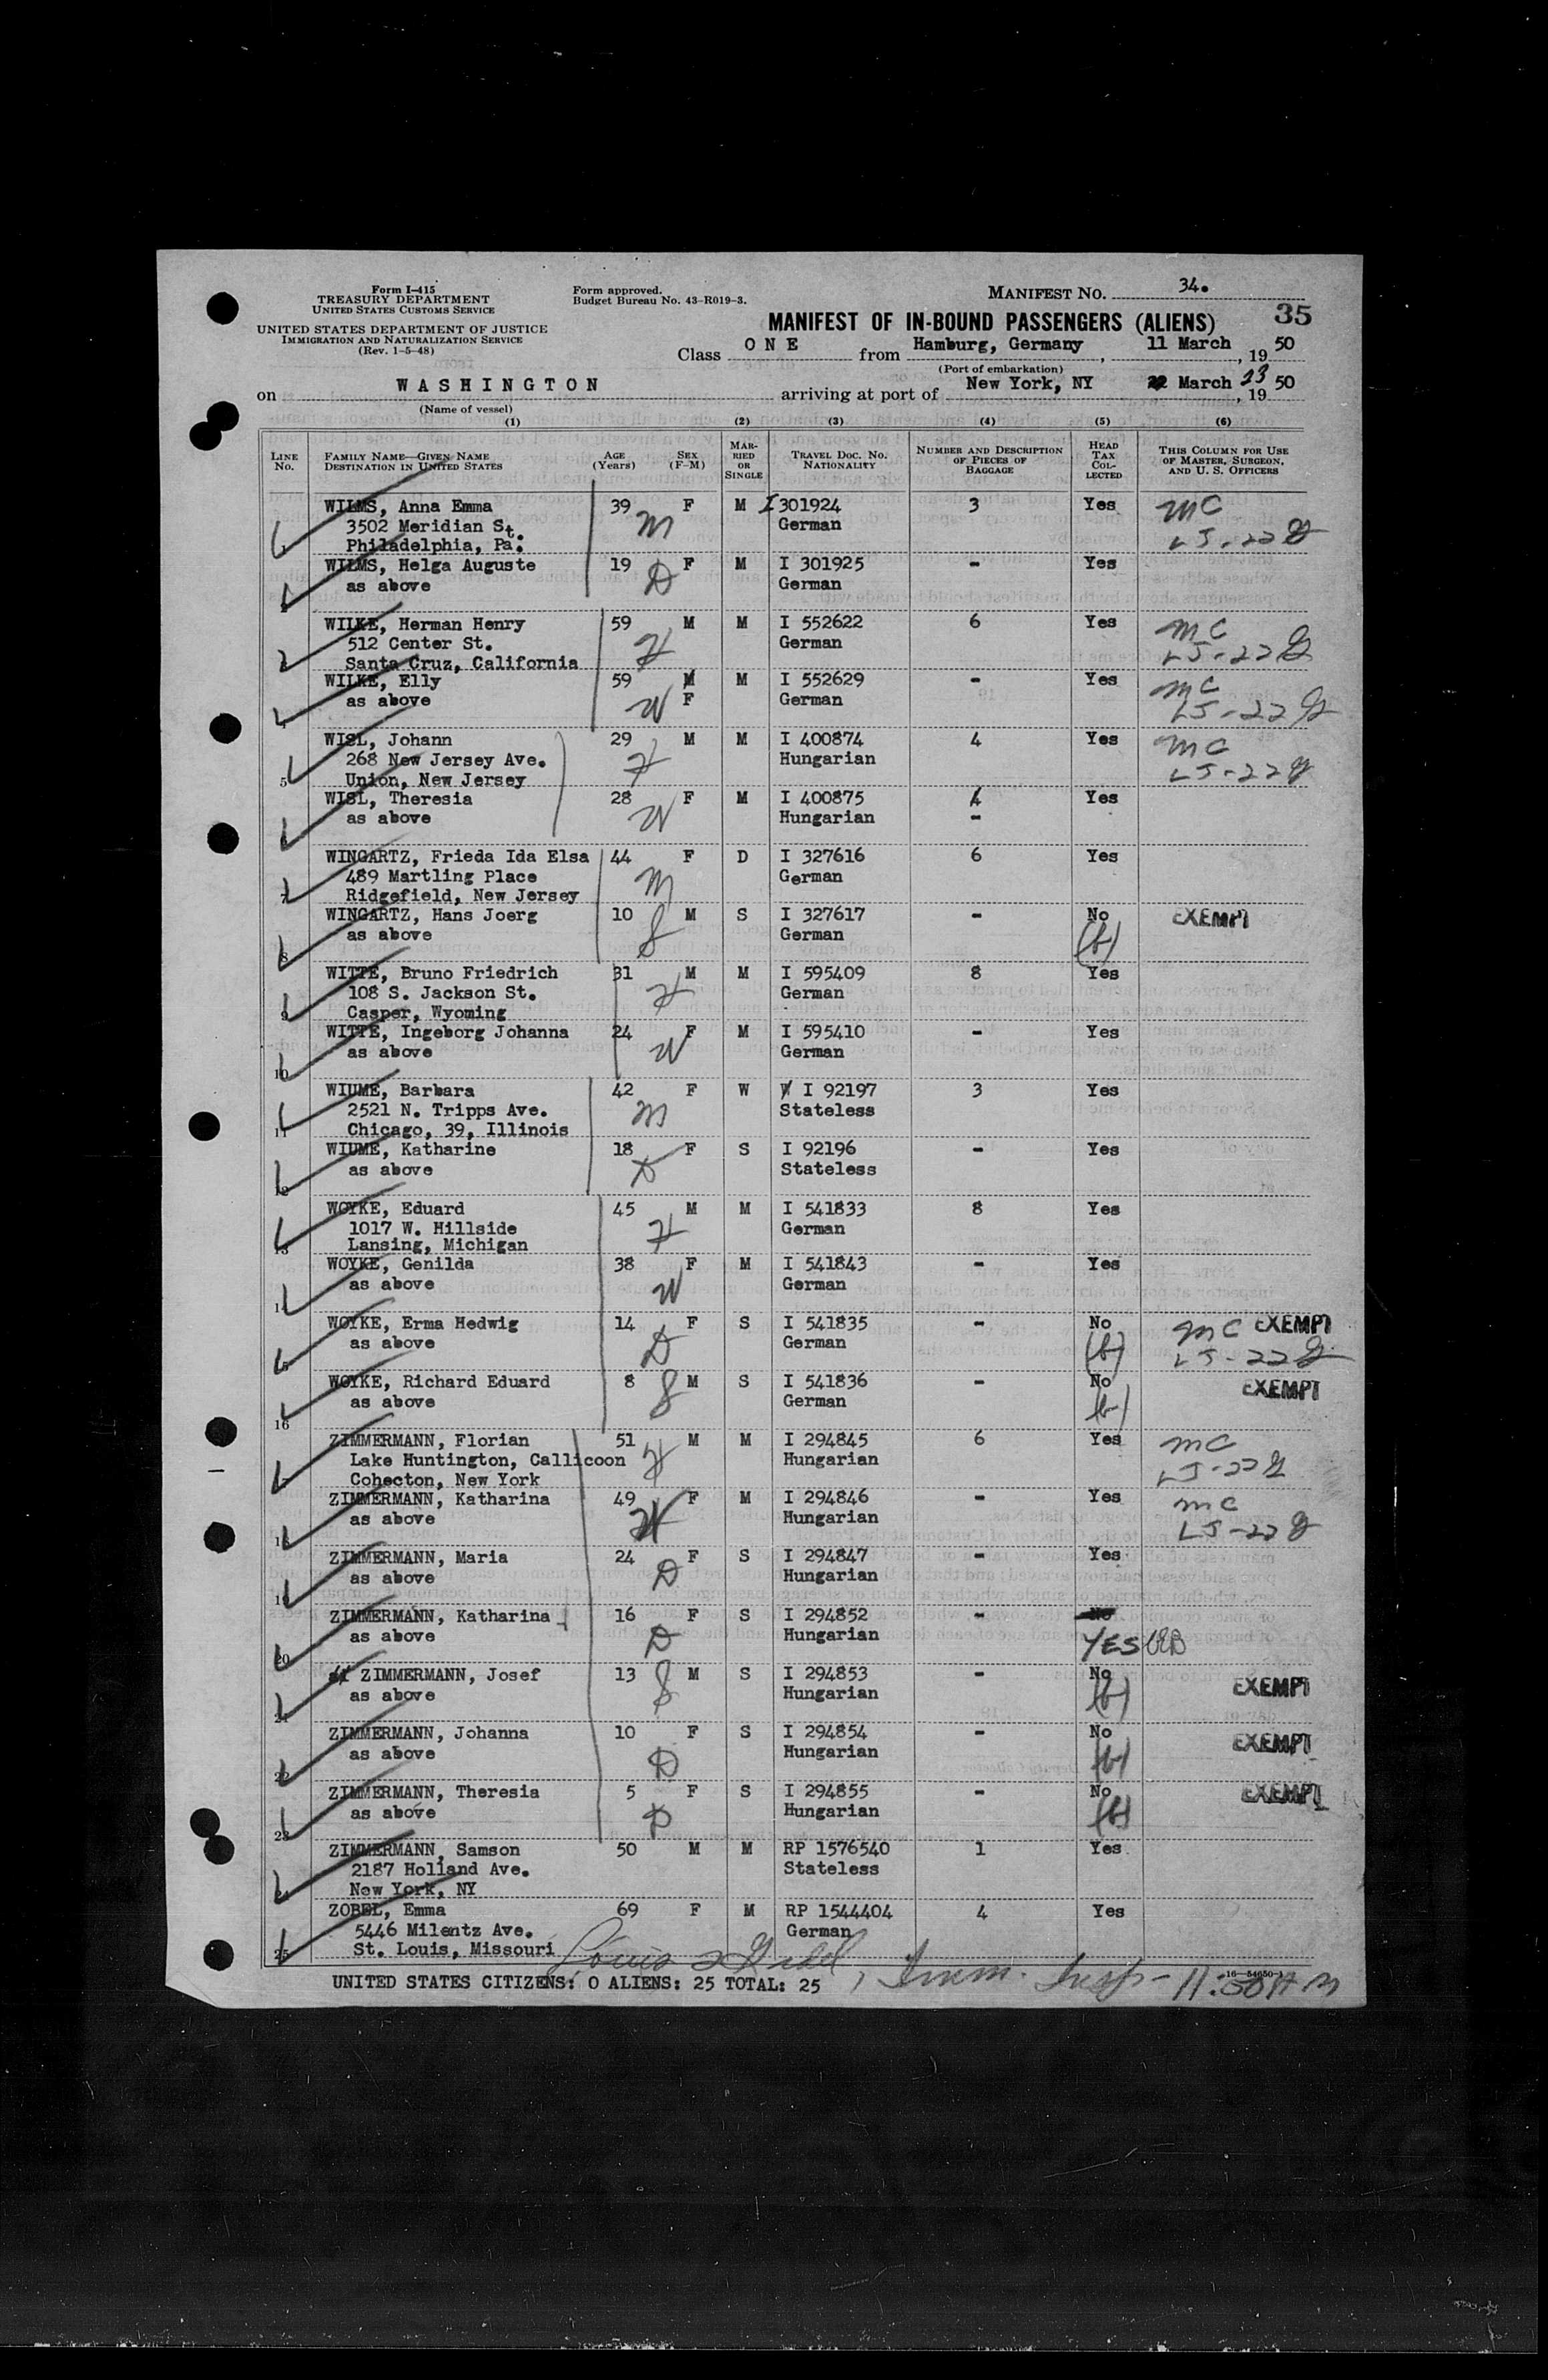 Form I-415
TREASURY DEPARTMENT
UNITED STATES CUSTOMS SERVICE
UNITED STATES DEPARTMENT OF JUSTICE
IMMIGRATION AND NATURALIZATION SERVICE
(Rev. 1-5-48)
Form approved.
Budget Bureau No. 43-R019-3.
MANIFEST NO. 34.
35
MANIFEST OF IN-BOUND PASSENGERS (ALIENS)
Class O N E from Hamburg, Germany, 11 March, 19 50
(Port of embarkation)
on W A S H I N G T O N arriving at port of New York, NY 22 March 23, 19 50
(Name of vessel)
(1) (2) (3) (4) (5) (6)
LINE No. FAMILY NAME—GIVEN NAME DESTINATION IN UNITED STATES AGE (Years) SEX (F-M) MARRIED OR SINGLE TRAVEL DOC. NO. NATIONALITY NUMBER AND DESCRIPTION OF PIECES OF BAGGAGE HEAD TAX COLLECTED THIS COLUMN FOR USE OF MASTER, SURGEON, AND U. S. OFFICERS
1 WILMS, Anna Emma 39 F M I 301924 3 Yes MC
3502 Meridian St. M German LJ-22
Philadelphia, Pa.
WILMS, Helga Auguste 19 F M I 301925 - Yes
as above D German
WILKE, Herman Henry 59 M M I 552622 6 Yes MC
512 Center St. H German LJ-22
Santa Cruz, California
WILKE, Elly 59 M M I 552629 - Yes MC
as above W F German LJ-22
WISL, Johann 29 M M I 400874 4 Yes MC
268 New Jersey Ave. H Hungarian LJ-22
5 Union, New Jersey
WISL, Theresia 28 F M I 400875 4 Yes
as above W Hungarian -
WINGARTZ, Frieda Ida Elsa 44 F D I 327616 6 Yes
489 Martling Place M German
7 Ridgefield, New Jersey
WINGARTZ, Hans Joerg 10 M S I 327617 - No EXEMPT
8 as above S German (b)
WITTE, Bruno Friedrich 31 M M I 595409 8 Yes
108 S. Jackson St. H German
9 Casper, Wyoming
WITTE, Ingeborg Johanna 24 F M I 595410 - Yes
10 as above W German
WIUME, Barbara 42 F W W I 92197 3 Yes
2521 N. Tripps Ave. M Stateless
11 Chicago, 39, Illinois
WIUME, Katharine 18 F S I 92196 - Yes
12 as above D Stateless
WOYKE, Eduard 45 M M I 541833 8 Yes
1017 W. Hillside H German
13 Lansing, Michigan
WOYKE, Genilda 38 F M I 541843 - Yes
14 as above W German
WOYKE, Erma Hedwig 14 F S I 541835 - No MC EXEMPT
15 as above D German (b) LJ-22
WOYKE, Richard Eduard 8 M S I 541836 - No EXEMPT
16 as above S German (b)
ZIMMERMANN, Florian 51 M M I 294845 6 Yes MC
Lake Huntington, Callicoon H Hungarian LJ-22
17 Cohecton, New York
ZIMMERMANN, Katharina 49 F M I 294846 - Yes MC
18 as above W Hungarian LJ-22
ZIMMERMANN, Maria 24 F S I 294847 - Yes
19 as above D Hungarian
ZIMMERMANN, Katharina 16 F S I 294852 - No
20 as above D Hungarian YES
ZIMMERMANN, Josef 13 M S I 294853 - No EXEMPT
21 as above S Hungarian (b)
ZIMMERMANN, Johanna 10 F S I 294854 - No EXEMPT
22 as above D Hungarian (b)
ZIMMERMANN, Theresia 5 F S I 294855 - No EXEMPT
23 as above D Hungarian (b)
ZIMMERMANN, Samson 50 M M RP 1576540 1 Yes
2187 Holland Ave. Stateless
24 New York, NY
ZOBEL, Emma 69 F M RP 1544404 4 Yes
5446 Milentz Ave. German
25 St. Louis, Missouri
UNITED STATES CITIZENS: 0 ALIENS: 25 TOTAL: 25
Louis, Imm. Insp- 11:50AM
16—54650-1